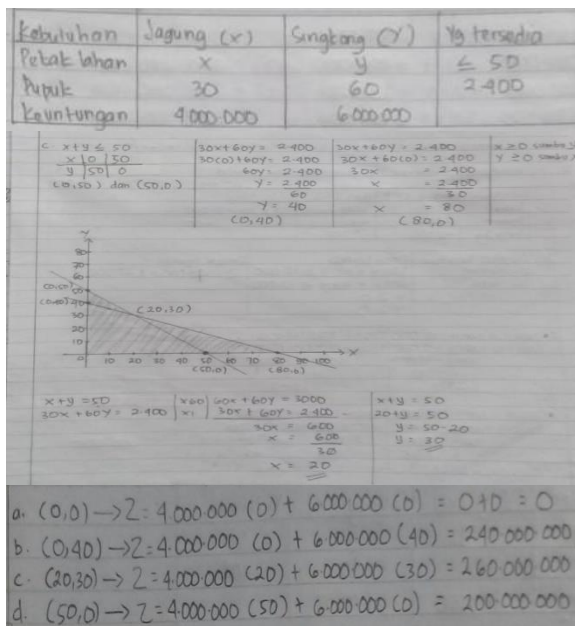 Kebutuhan Jagung (x) Singkong (Y) Yg tersedia
Petak lahan x y ≤ 50
Pupuk 30 60 2.400
Keuntungan 4.000.000 6.000.000
c. x+y ≤ 50 30x+60y = 2.400 30x+60y = 2.400 x ≥ 0 sumbu
x 0 50 30(0)+60y = 2.400 30x+60(0) = 2.400 y ≥ 0 sumbu
y 50 0 60y = 2.400 30x = 2.400
(0,50) dan (50,0) y = 2.400 x = 2.400
60 30
y = 40 x = 80
(0,40) (80,0)
y
80
70
60
(0,50) 50
(0,40) 40
30 (20,30)
20
10
0 10 20 30 40 50 60 70 80 90 100 x
(50,0) (80,0)
x+y = 50 x60 60x + 60y = 3000 x+y = 50
30x+60y = 2.400 x1 30x + 60y = 2.400 - 20+y = 50
30x = 600 y = 50-20
x = 600 y = 30
30
x = 20
a. (0,0) → Z = 4.000.000 (0) + 6.000.000 (0) = 0+0 = 0
b. (0,40) → Z = 4.000.000 (0) + 6.000.000 (40) = 240.000.000
c. (20,30) → Z = 4.000.000 (20) + 6.000.000 (30) = 260.000.000
d. (50,0) → Z = 4.000.000 (50) + 6.000.000 (0) = 200.000.000